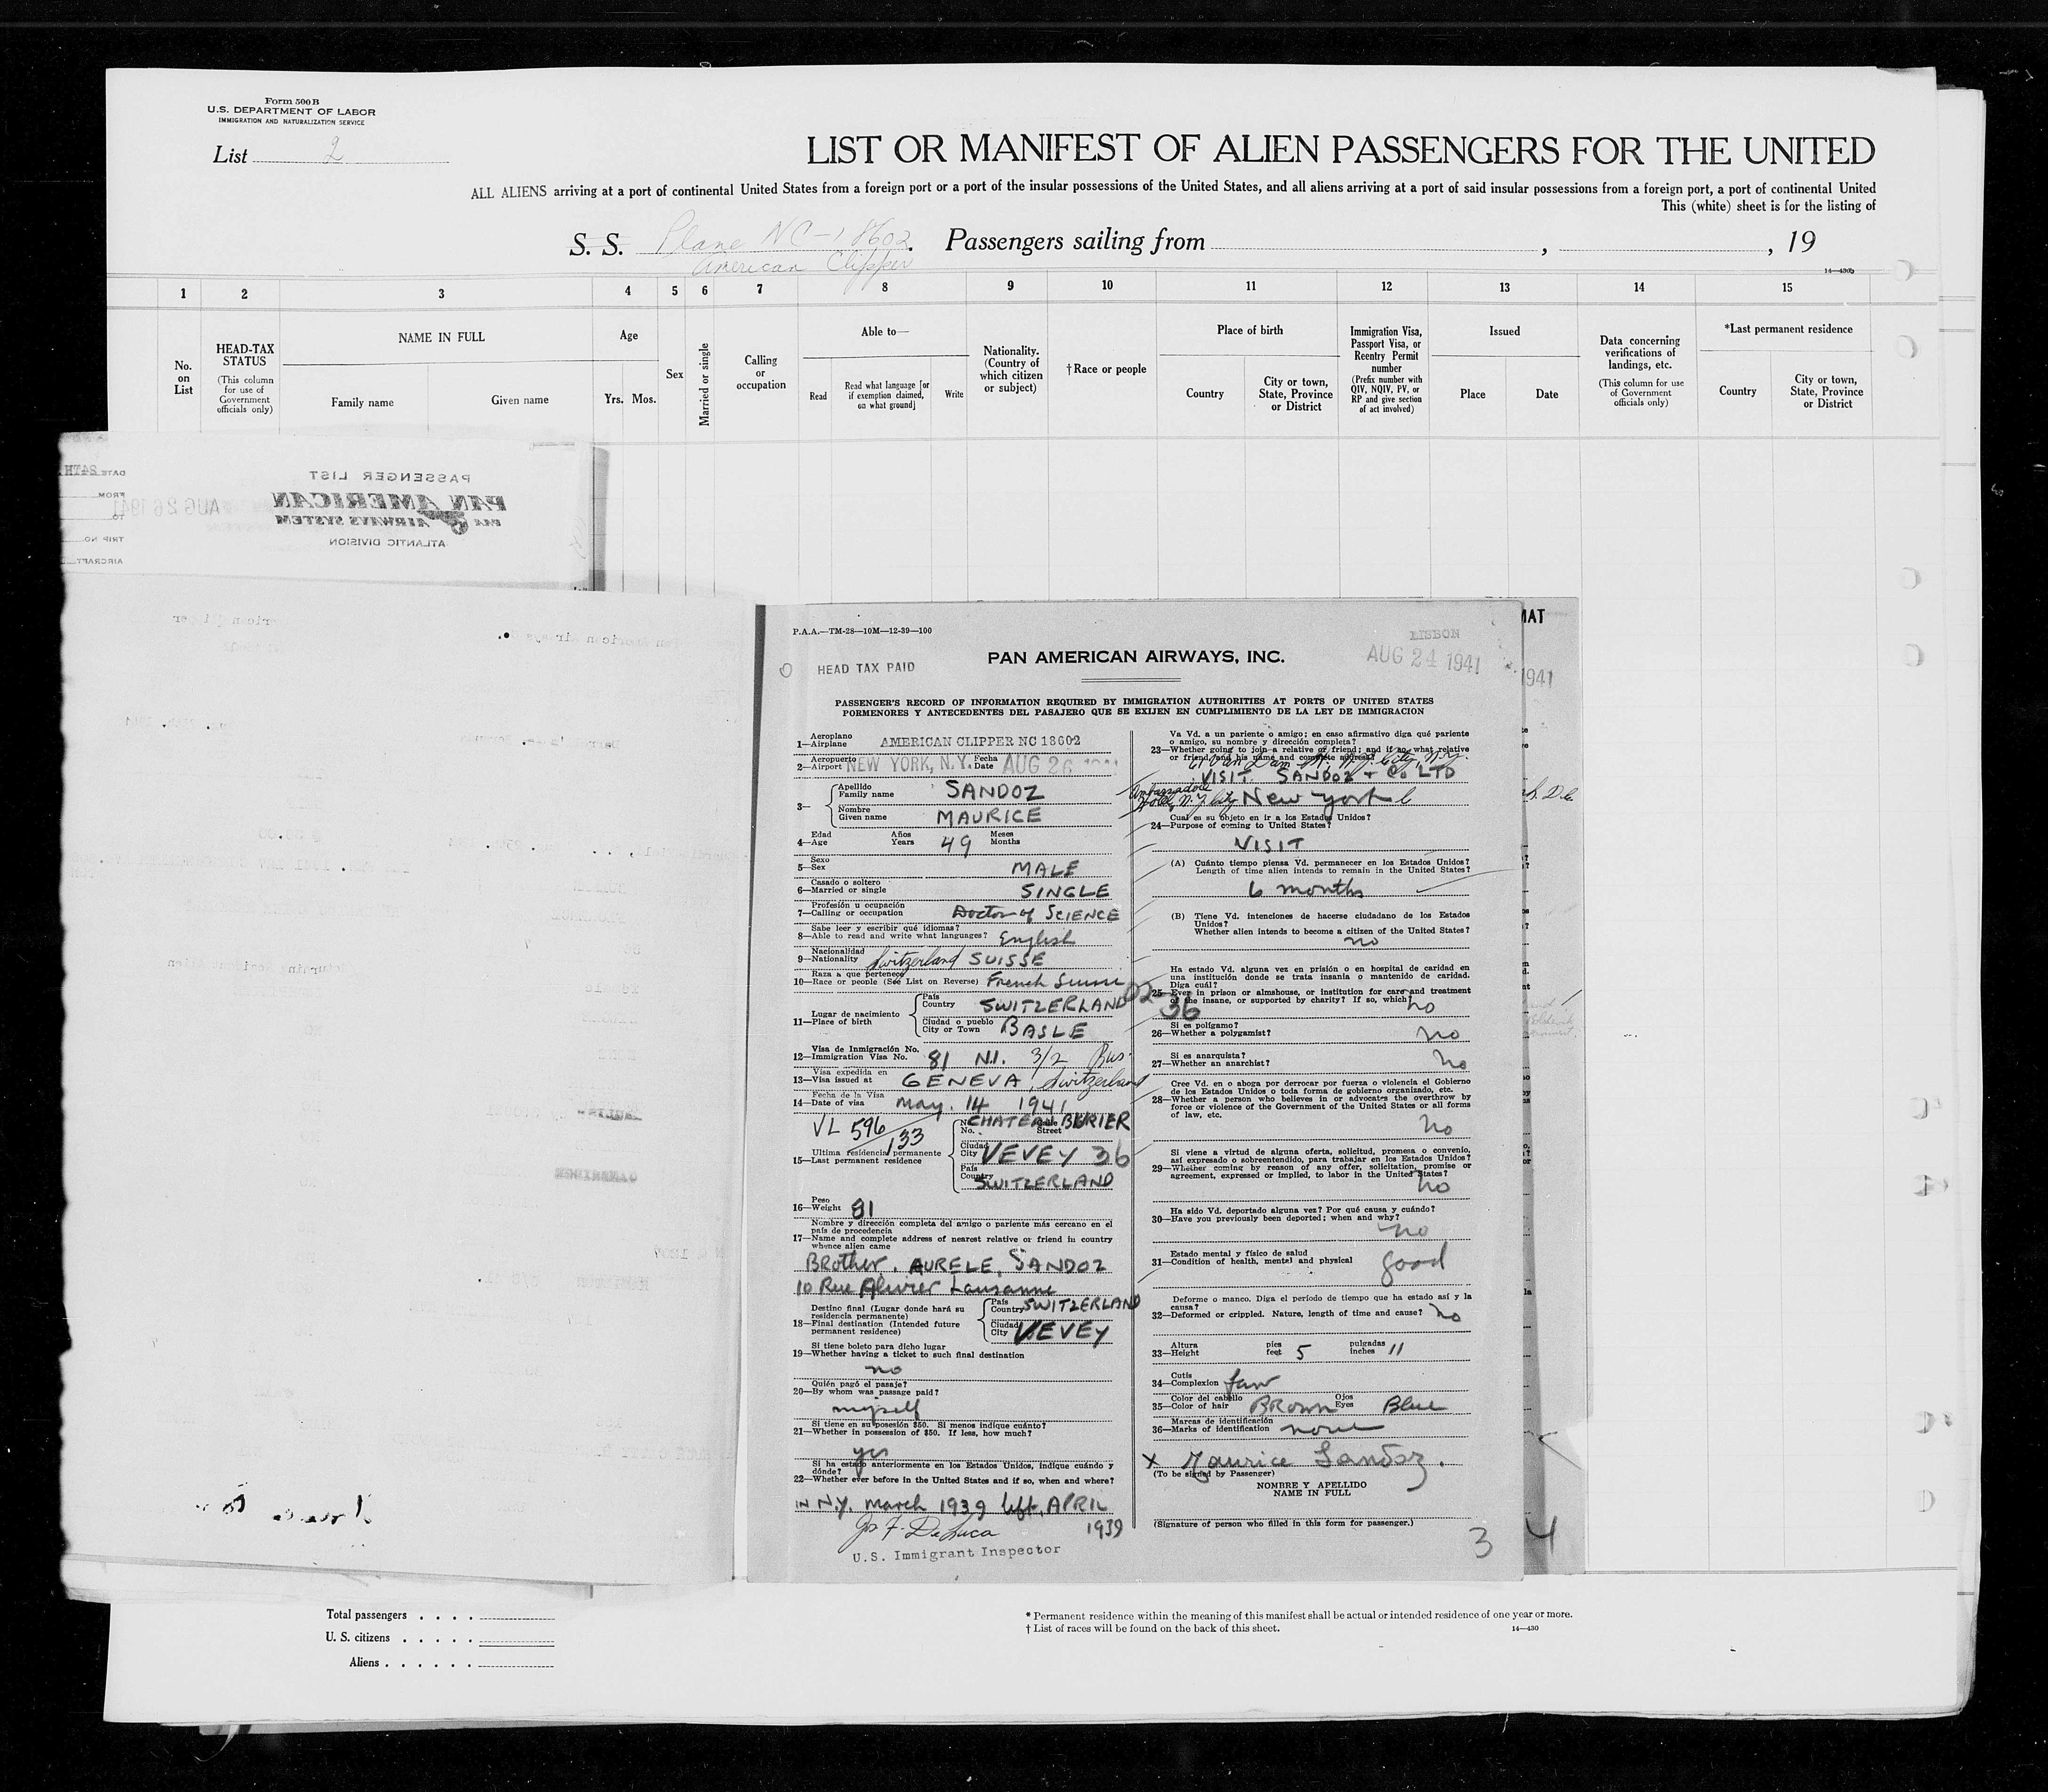 Form 500B
U.S. DEPARTMENT OF LABOR
IMMIGRATION AND NATURALIZATION SERVICE
List 2
LIST OR MANIFEST OF ALIEN PASSENGERS FOR THE UNITED
ALL ALIENS arriving at a port of continental United States from a foreign port or a port of the insular possessions of the United States, and all aliens arriving at a port of said insular possessions from a foreign port, a port of continental United
This (white) sheet is for the listing of
S. S. Plane NC-18602. Passengers sailing from , , 19
American Clipper
14—430b
1 2 3 4 5 6 7 8 9 10 11 12 13 14 15
No. on List
HEAD-TAX STATUS
(This column for use of Government officials only)
NAME IN FULL
Family name Given name
Age
Yrs. Mos.
Sex
Married or single
Calling or occupation
Able to—
Read
Read what language [or if exemption claimed, on what ground]
Write
Nationality. (Country of which citizen or subject)
†Race or people
Place of birth
Country
City or town, State, Province or District
Immigration Visa, Passport Visa, or Reentry Permit number
(Prefix number with QIV, NQIV, PV, or RP and give section of act involved)
Issued
Place Date
Data concerning verifications of landings, etc.
(This column for use of Government officials only)
*Last permanent residence
Country
City or town, State, Province or District
PASSENGER LIST
PAN AMERICAN
PAA AIRWAYS SYSTEM
ATLANTIC DIVISION
DATE 24TH
FROM
TO
AUG 26 1941
TRIP NO.
AIRCRAFT
P.A.A.—TM-28—10M—12-39—100
HEAD TAX PAID
PAN AMERICAN AIRWAYS, INC.
LISBON
AUG 24 1941
1941
PASSENGER'S RECORD OF INFORMATION REQUIRED BY IMMIGRATION AUTHORITIES AT PORTS OF UNITED STATES
PORMENORES Y ANTECEDENTES DEL PASAJERO QUE SE EXIJEN EN CUMPLIMIENTO DE LA LEY DE IMMIGRACION
Aeroplano
1—Airplane AMERICAN CLIPPER NC 18602
Aeropuerto
2—Airport NEW YORK, N.Y. Fecha Date AUG 26 1941
3— Apellido
Family name SANDOZ
Nombre
Given name MAURICE
Edad Años Meses
4—Age Years 49 Months
Sexo
5—Sex MALE
Casado o soltero
6—Married or single SINGLE
Profesión u ocupación
7—Calling or occupation Doctor of SCIENCE
Sabe leer y escribir qué idiomas?
8—Able to read and write what languages? English
Nacionalidad
9—Nationality Switzerland SUISSE
Raza a que pertenece
10—Race or people (See List on Reverse) French Suisse
Lugar de nacimiento
11—Place of birth
País
Country SWITZERLAND
Ciudad o pueblo
City or Town BASLE
Visa de Inmigración No.
12—Immigration Visa No. 81 N.I. 3/2 Bus.
Visa expedida en
13—Visa issued at GENEVA, Switzerland
Fecha de la Visa
14—Date of visa May. 14 1941
VL 596/133
No. Street
Ultima residencia permanente
15—Last permanent residence
Ciudad
City VEVEY 36
País
Country SWITZERLAND
Peso
16—Weight 81
Nombre y dirección completa del amigo o pariente más cercano en el país de procedencia
17—Name and complete address of nearest relative or friend in country whence alien came
Brother. AURELE, SANDOZ
10 Rue Lausanne
Destino final (Lugar donde hará su residencia permanente)
18—Final destination (Intended future permanent residence)
País
Country SWITZERLAND
Ciudad
City VEVEY
Si tiene boleto para dicho lugar
19—Whether having a ticket to such final destination
no
Quién pagó el pasaje?
20—By whom was passage paid?
myself
Si tiene en su posesión $50. Si menos indique cuánto?
21—Whether in possession of $50. If less, how much?
yes
Si ha estado anteriormente en los Estados Unidos, indique cuándo y dónde?
22—Whether ever before in the United States and if so, when and where?
IN N.Y. March 1939 left, APRIL
1939
Jos F. De Luca
U.S. Immigrant Inspector
Va Vd. a un pariente o amigo; en caso afirmativo diga qué pariente o amigo, su nombre y dirección completa?
23—Whether going to join a relative or friend; and if so, what relative or friend, and his name and complete address?
61 Van Dam St, N.Y. City, N.Y.
VISIT SANDOZ & Co LTD
Ambassador Hotel, N.Y. City New York
Cual es su objeto en ir a los Estados Unidos?
24—Purpose of coming to United States?
VISIT
(A) Cuánto tiempo piensa Vd. permanecer en los Estados Unidos?
Length of time alien intends to remain in the United States?
6 months
(B) Tiene Vd. intenciones de hacerse ciudadano de los Estados Unidos?
Whether alien intends to become a citizen of the United States?
no
Ha estado Vd. alguna vez en prisión o en hospital de caridad en una institución donde se trata insania o mantenido de caridad.
Diga cuál?
25—Ever in prison or almshouse, or institution for care and treatment of the insane, or supported by charity? If so, which?
36 no
Si es polígamo?
26—Whether a polygamist? no
Si es anarquista?
27—Whether an anarchist? no
Cree Vd. en o aboga por derrocar por fuerza o violencia el Gobierno de los Estados Unidos o toda forma de gobierno organizado, etc.
28—Whether a person who believes in or advocates the overthrow by force or violence of the Government of the United States or all forms of law, etc.
no
Si viene a virtud de alguna oferta, solicitud, promesa o convenio, así expresado o sobreentendido, para trabajar en los Estados Unidos?
29—Whether coming by reason of any offer, solicitation, promise or agreement, expressed or implied, to labor in the United States?
no
Ha sido Vd. deportado alguna vez? Por qué causa y cuándo?
30—Have you previously been deported; when and why?
no
Estado mental y físico de salud
31—Condition of health, mental and physical good
Deforme o manco. Diga el período de tiempo que ha estado así y la causa?
32—Deformed or crippled. Nature, length of time and cause? no
Altura pies pulgadas
33—Height feet 5 inches 11
Cutis
34—Complexion fair
Color del cabello Ojos
35—Color of hair Brown Eyes Blue
Marcas de identificación
36—Marks of identification none
x Maurice Sandoz.
(To be signed by Passenger)
NOMBRE Y APELLIDO
NAME IN FULL
(Signature of person who filled in this form for passenger.)
3 4
Total passengers . . . .
U. S. citizens . . . . .
Aliens . . . . . .
* Permanent residence within the meaning of this manifest shall be actual or intended residence of one year or more.
† List of races will be found on the back of this sheet.
14—430